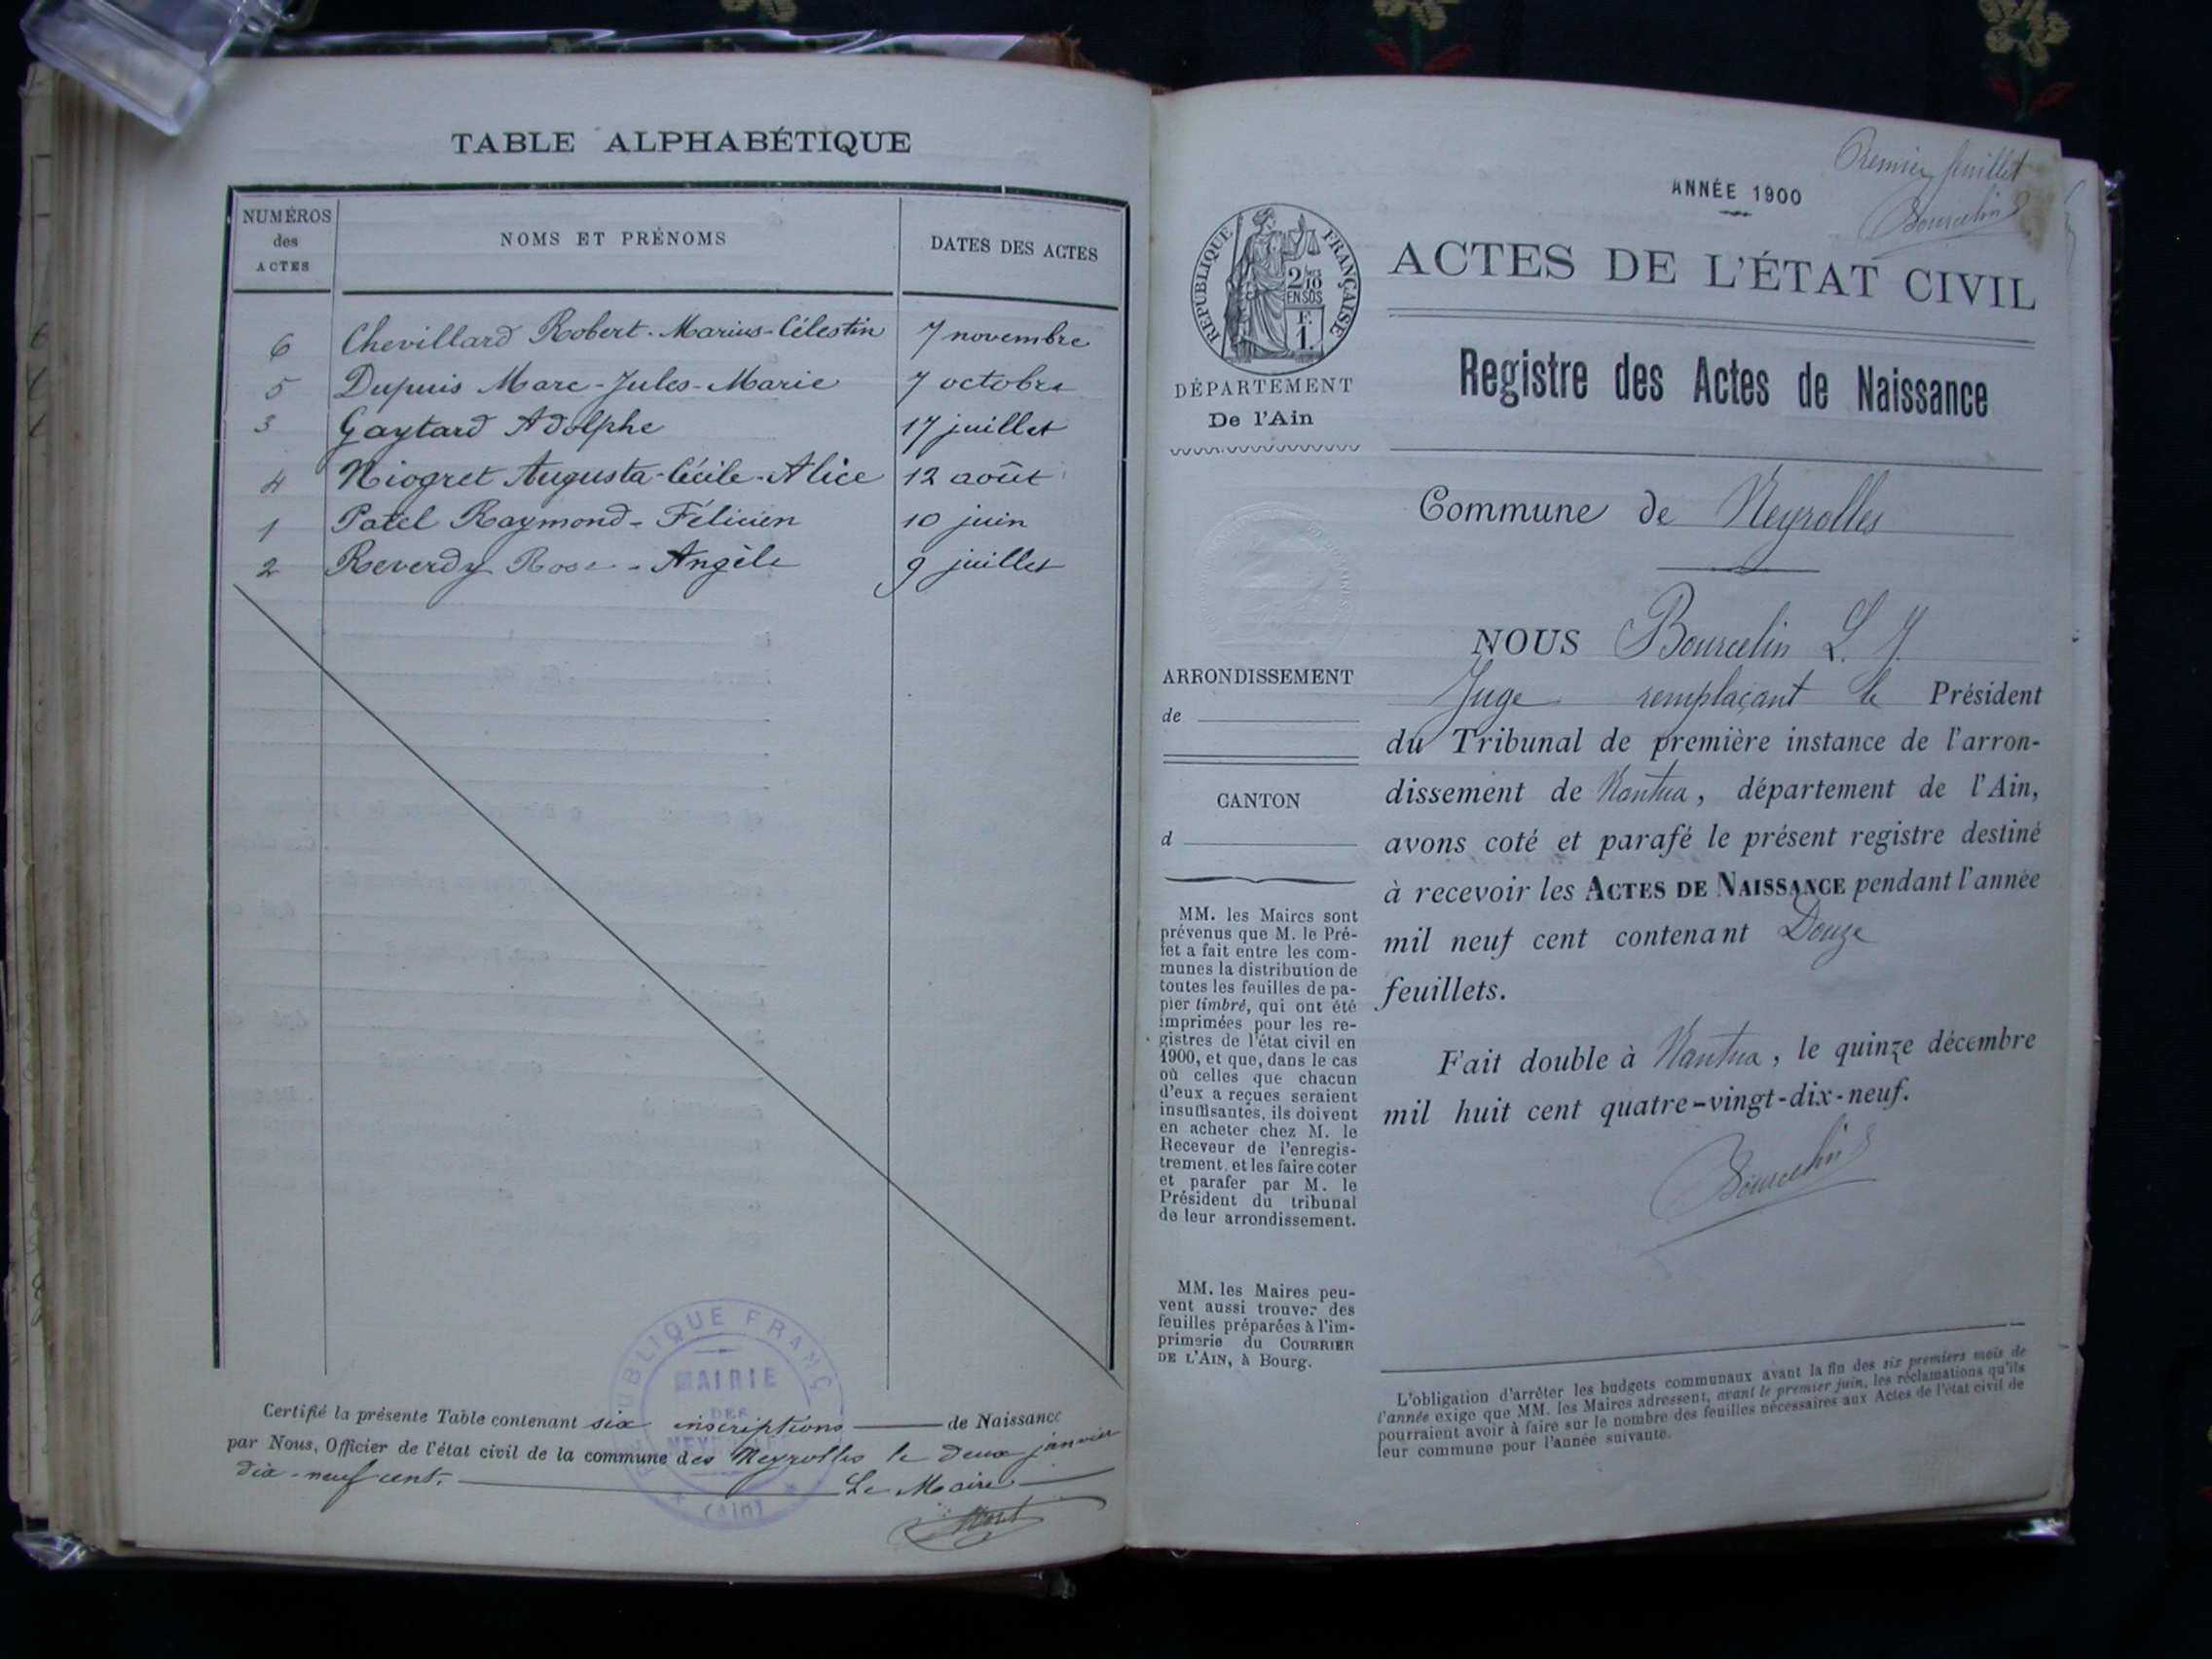 TABLE ALPHABÉTIQUE
NUMÉROS
des
ACTES
NOMS ET PRÉNOMS
DATES DES ACTES
6 Chevillard Robert-Marius-Célestin 7 novembre
5 Dupuis Marc-Jules-Marie 7 octobre
3 Gaytard Adolphe 17 juillet
4 Niogret Augusta-Cécile-Alice 12 août
1 Patel Raymond-Félicien 10 juin
2 Reverdy Rose-Angèle 9 juillet
Certifié la présente Table contenant six inscriptions de Naissance
par Nous, Officier de l'état civil de la commune des Neyrolles le deux janvier
dix-neuf cent.
Le Maire
MAIRIE
DES
(Ain)
Premier feuillet
Bourcelin
ANNÉE 1900
RÉPUBLIQUE FRANÇAISE
2/10
EN SUS
F.
1.
ACTES DE L'ÉTAT CIVIL
DÉPARTEMENT
De l'Ain
Registre des Actes de Naissance
Commune de Neyrolles
NOUS Bourcelin L. J.
Juge remplaçant le Président
du Tribunal de première instance de l'arron-
dissement de Nantua, département de l'Ain,
avons coté et parafé le présent registre destiné
à recevoir les ACTES DE NAISSANCE pendant l'année
mil neuf cent contenant Douze
feuillets.
Fait double à Nantua, le quinze décembre
mil huit cent quatre-vingt-dix-neuf.
Bourcelin
ARRONDISSEMENT
de
CANTON
d
MM. les Maires sont
prévenus que M. le Pré-
fet a fait entre les com-
munes la distribution de
toutes les feuilles de pa-
pier timbré, qui ont été
imprimées pour les re-
gistres de l'état civil en
1900, et que, dans le cas
où celles que chacun
d'eux a reçues seraient
insuffisantes, ils doivent
en acheter chez M. le
Receveur de l'enregis-
trement, et les faire coter
et parafer par M. le
Président du tribunal
de leur arrondissement.
MM. les Maires peu-
vent aussi trouver des
feuilles préparées à l'im-
primerie du COURRIER
DE L'AIN, à Bourg.
L'obligation d'arrêter les budgets communaux avant la fin des six premiers mois de
l'année exige que MM. les Maires adressent, avant le premier juin, les réclamations qu'ils
pourraient avoir à faire sur le nombre des feuilles nécessaires aux Actes de l'état civil de
leur commune pour l'année suivante.